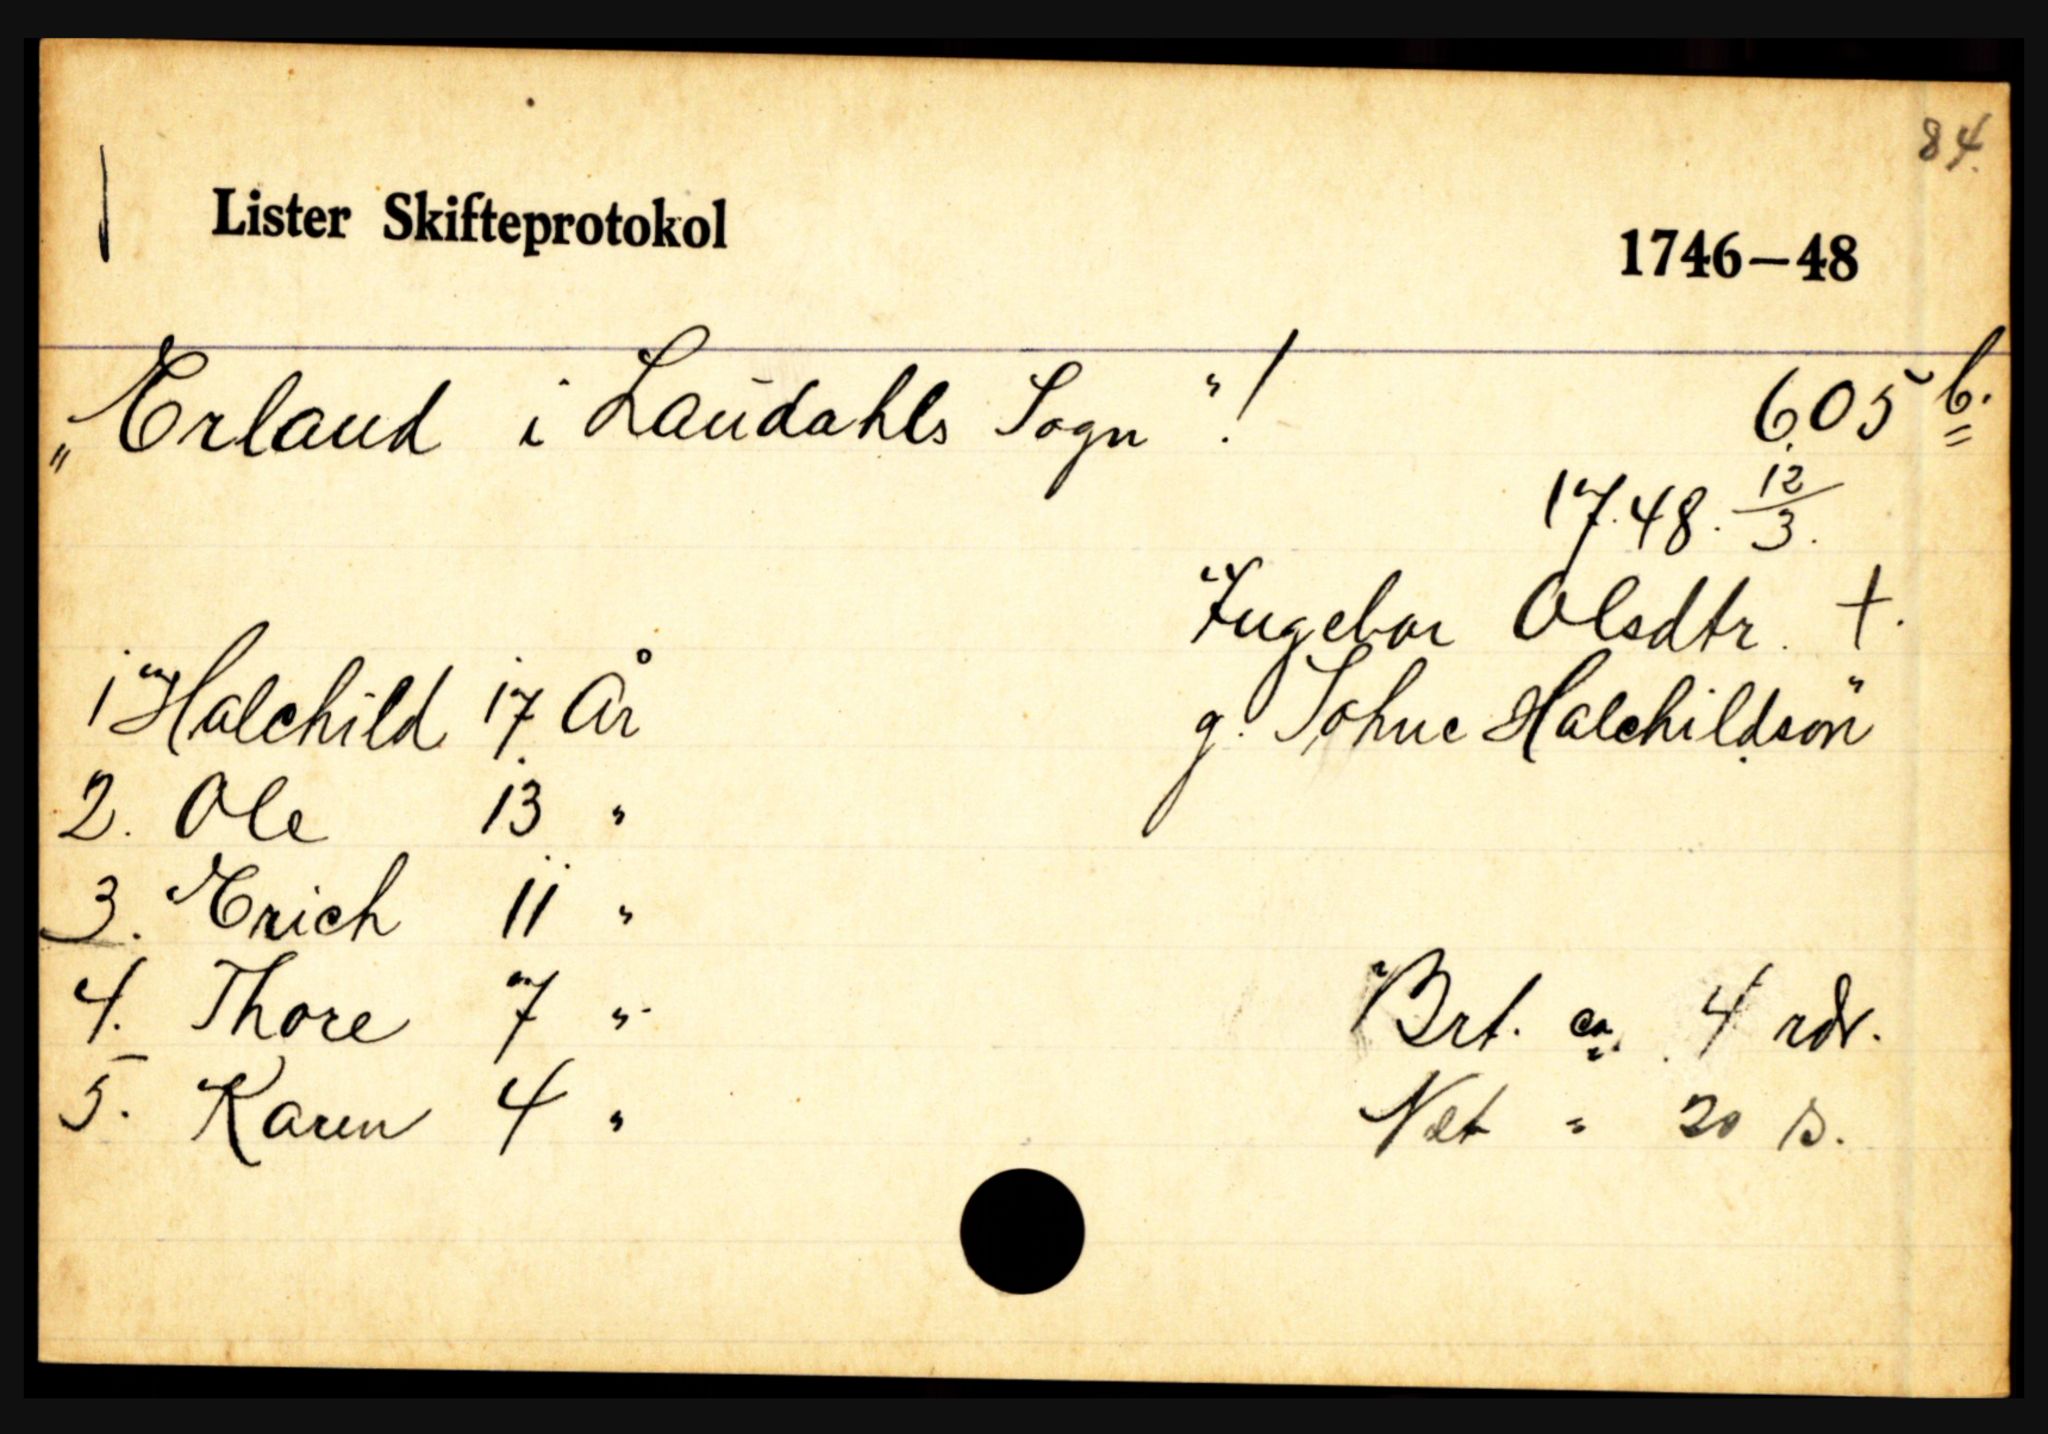 84.
Lister Skifteprotokol 1746–48
"Erland i Laudahls Sogn"! 605 b.
1748. 12/3.
Ingebor Olsdtr. †.
1 Halchild 17 År g. Tohne Halchildsøn"
2. Ole 13 "
3. Erich 11 "
4. Thore 7 " Brt. ca. 4 rdr.
5. Karen 4 " Net " 20 s.